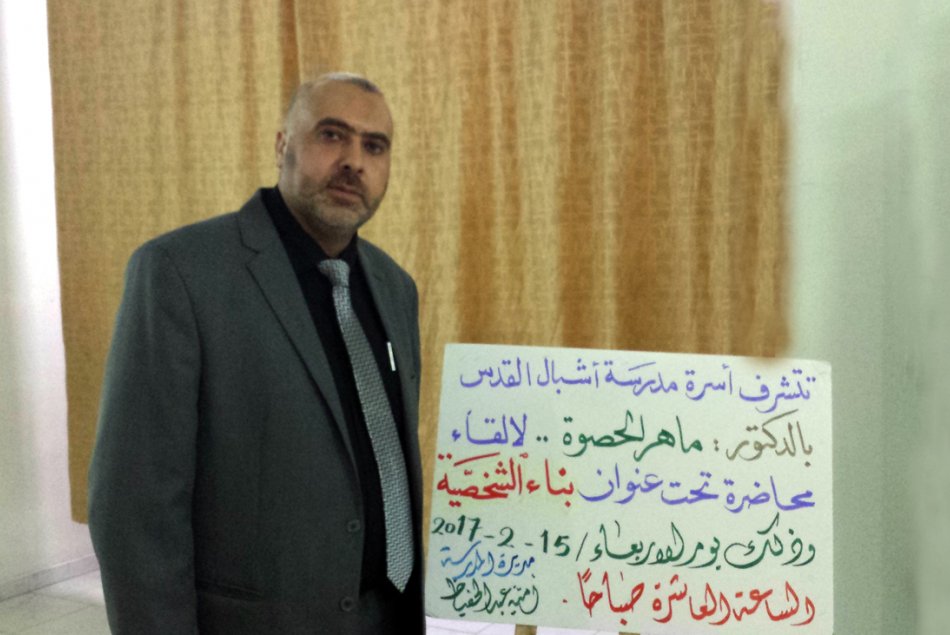 تتشرف أسرة مدرسة أشبال القدس
بالدكتور : ماهر الحصوة .. لإلقاء
محاضرة تحت عنوان بناء الشخصيّة
وذلك يوم الاربعاء / 15 - 2 - 2017
الساعة العاشرة صباحًا .
مديرة المدرسة
أمنية عبد الحفيظ